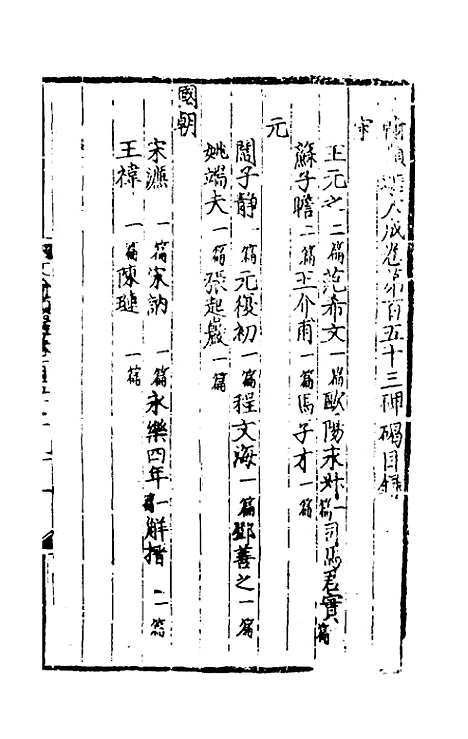 大成卷第百五十三碑碣目錄
宋
王元之二篇范希文一篇歐陽永叔一篇司馬君實篇
蘇子瞻二篇王介甫一篇馬子才一篇
元
閻子靜一篇元復初一篇程文海一篇鄧善之一篇
姚端夫一篇張起巖一篇
國朝
宋濂一篇宋訥一篇永樂四年一篇解搢二篇
王褘一篇陳璉一篇